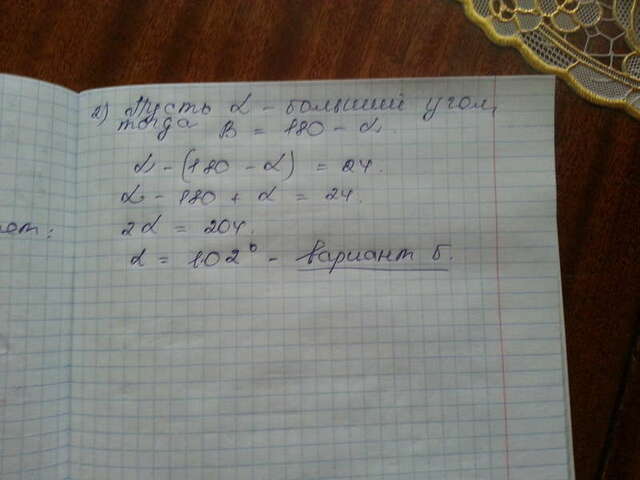 2) Пусть α - больший угол,
тогда β = 180 - α
α - (180 - α) = 24.
α - 180 + α = 24.
2α = 204.
α = 102° - вариант Б.